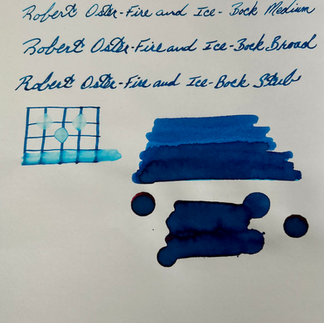 Robert Oster-Fire and Ice-Bock Medium
Robert Oster-Fire and Ice-Bock Broad
Robert Oster-Fire and Ice-Bock Stub